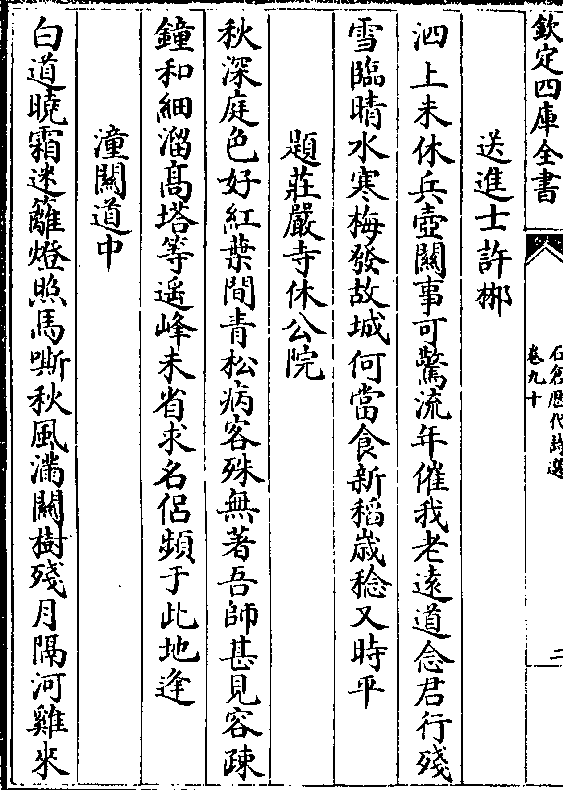 欽定四庫全書
石倉歷代詩選
卷九十
二
送進士許郴
泗上未休兵壺關事可驚流年催我老遠道念君行殘
雪臨晴水寒梅發故城何當食新稻歲稔又時平
題莊嚴寺休公院
秋深庭色好紅葉間青松病客殊無著吾師甚見容疎
鐘和細溜髙塔等遥峰未省求名侶頻于此地逢
潼關道中
白道曉霜迷籬燈照馬嘶秋風滿關樹殘月隔河雞來